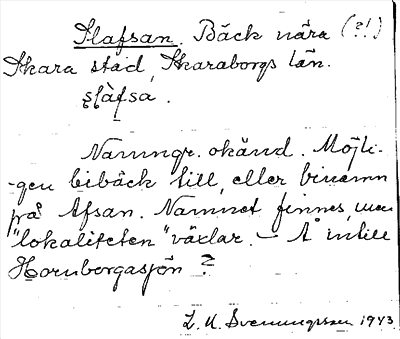 Slafsan. Bäck nära (?!)
Skara stad, Skaraborgs län.
slàfsa.
Namngr. okänd. Möjli-
-gen bibäck till, eller binamn
på Afsan. Namnet finnes, men
"lokaliteten" växlar. — Å intill
Hornborgasjön?
L. M. Svenungsson 1943.